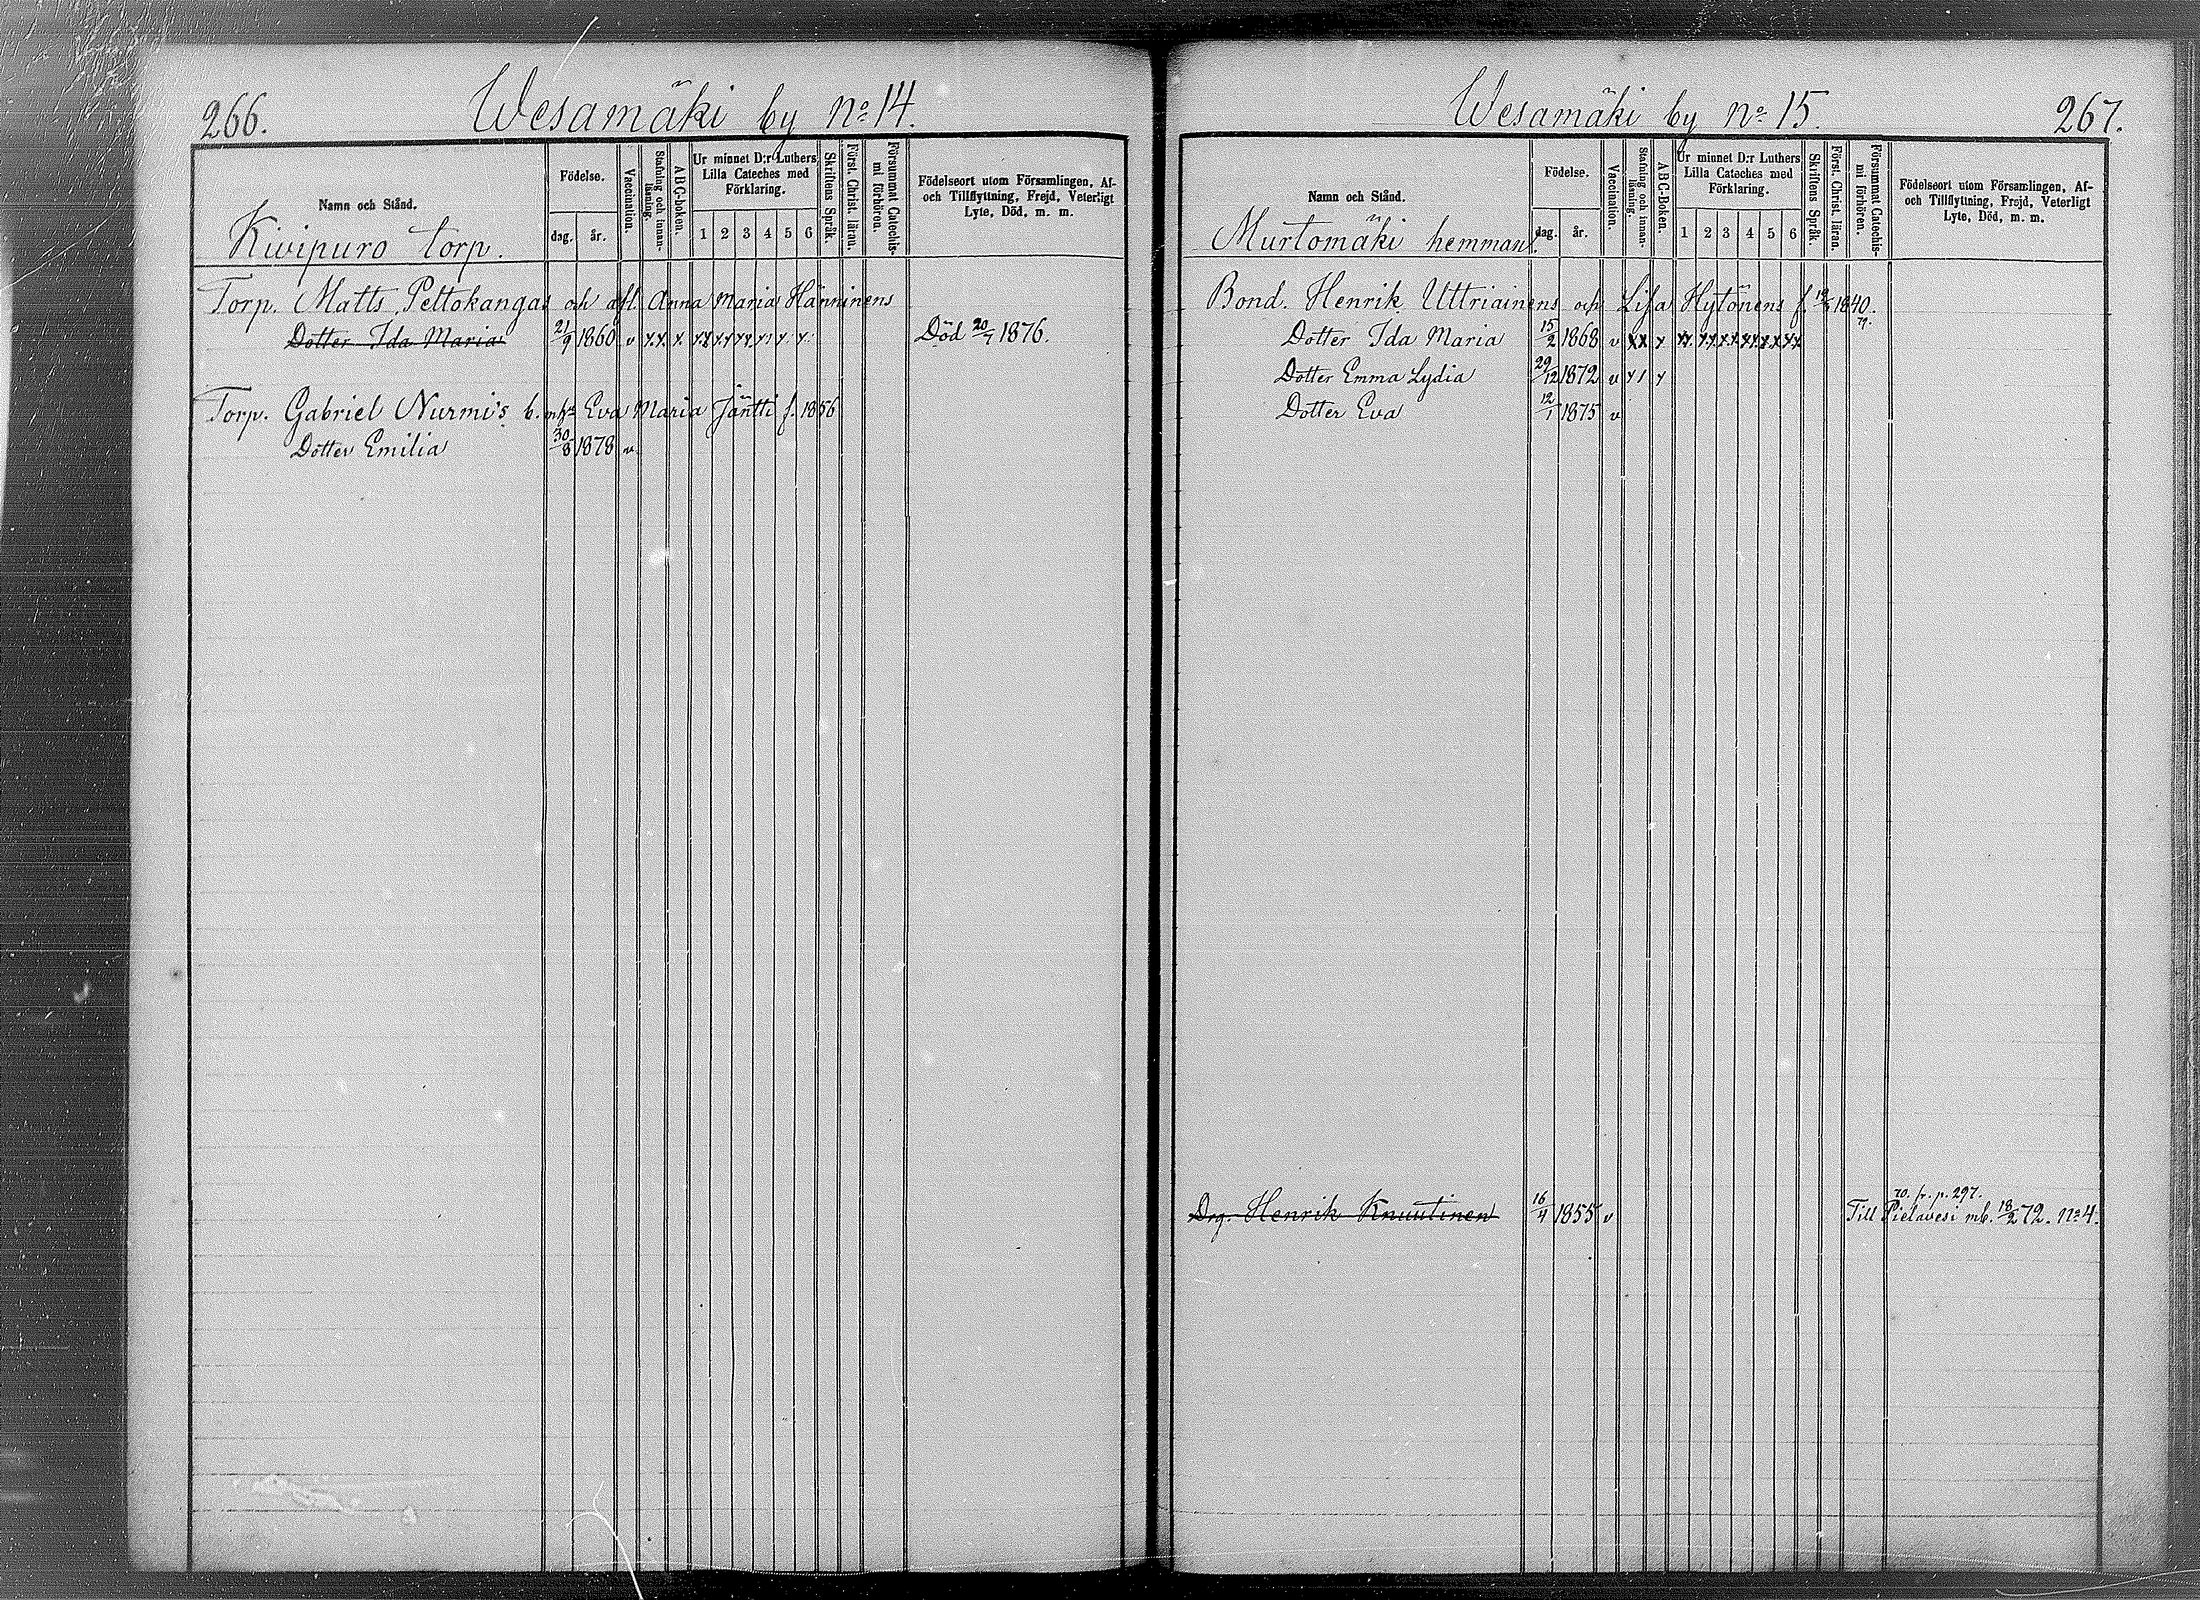 266.
Wesamäki by No 14.
Namn och Stånd.
Födelse.
dag.
år.
Vaccination.
Stafning och innan-
läsning.
ABC-boken.
Ur minnet D:r Luthers
Lilla Cateches med
Förklaring.
1 2 3 4 5 6
Skriftens Språk.
Först. Christ. läran.
Försummat Catechis-
mi förhören.
Födelseort utom Församlingen, Af-
och Tillflyttning, Frejd, Veterligt
Lyte, Död, m. m.
Kivipuro torp.
Torp. Matts Peltokangas och afl. Anna Maria Hänninens
Dotter Ida Maria 21/9 1860 v Död 20/7 1876.
Torp. Gabriel Nurmi's b. Eva Maria Jäntti f. 1856
Dotter Emilia 30/8 1878 v.
Wesamäki by No 15.
267.
Namn och Stånd.
Födelse.
dag.
år.
Vaccination.
Stafning och innan-
läsning.
ABC-Boken.
Ur minnet D:r Luthers
Lilla Cateches med
Förklaring.
1 2 3 4 5 6
Skriftens Språk.
Först. Christ. läran.
Försummat Catechis-
mi förhören.
Födelseort utom Församlingen, Af-
och Tillflyttning, Frejd, Veterligt
Lyte, Död, m. m.
Murtomäki hemman.
Bond. Henrik Uttriainens och Lisa Hytönens f. 1840.
Dotter Ida Maria 15/2 1868 v
Dotter Emma Lydia 29/12 1872 v
Dotter Eva 12/1 1875 v
fr. p. 297.
Drg. Henrik Knuutinen 16/4 1855 v Till Pielavesi mb. 18/2 72. No 4.